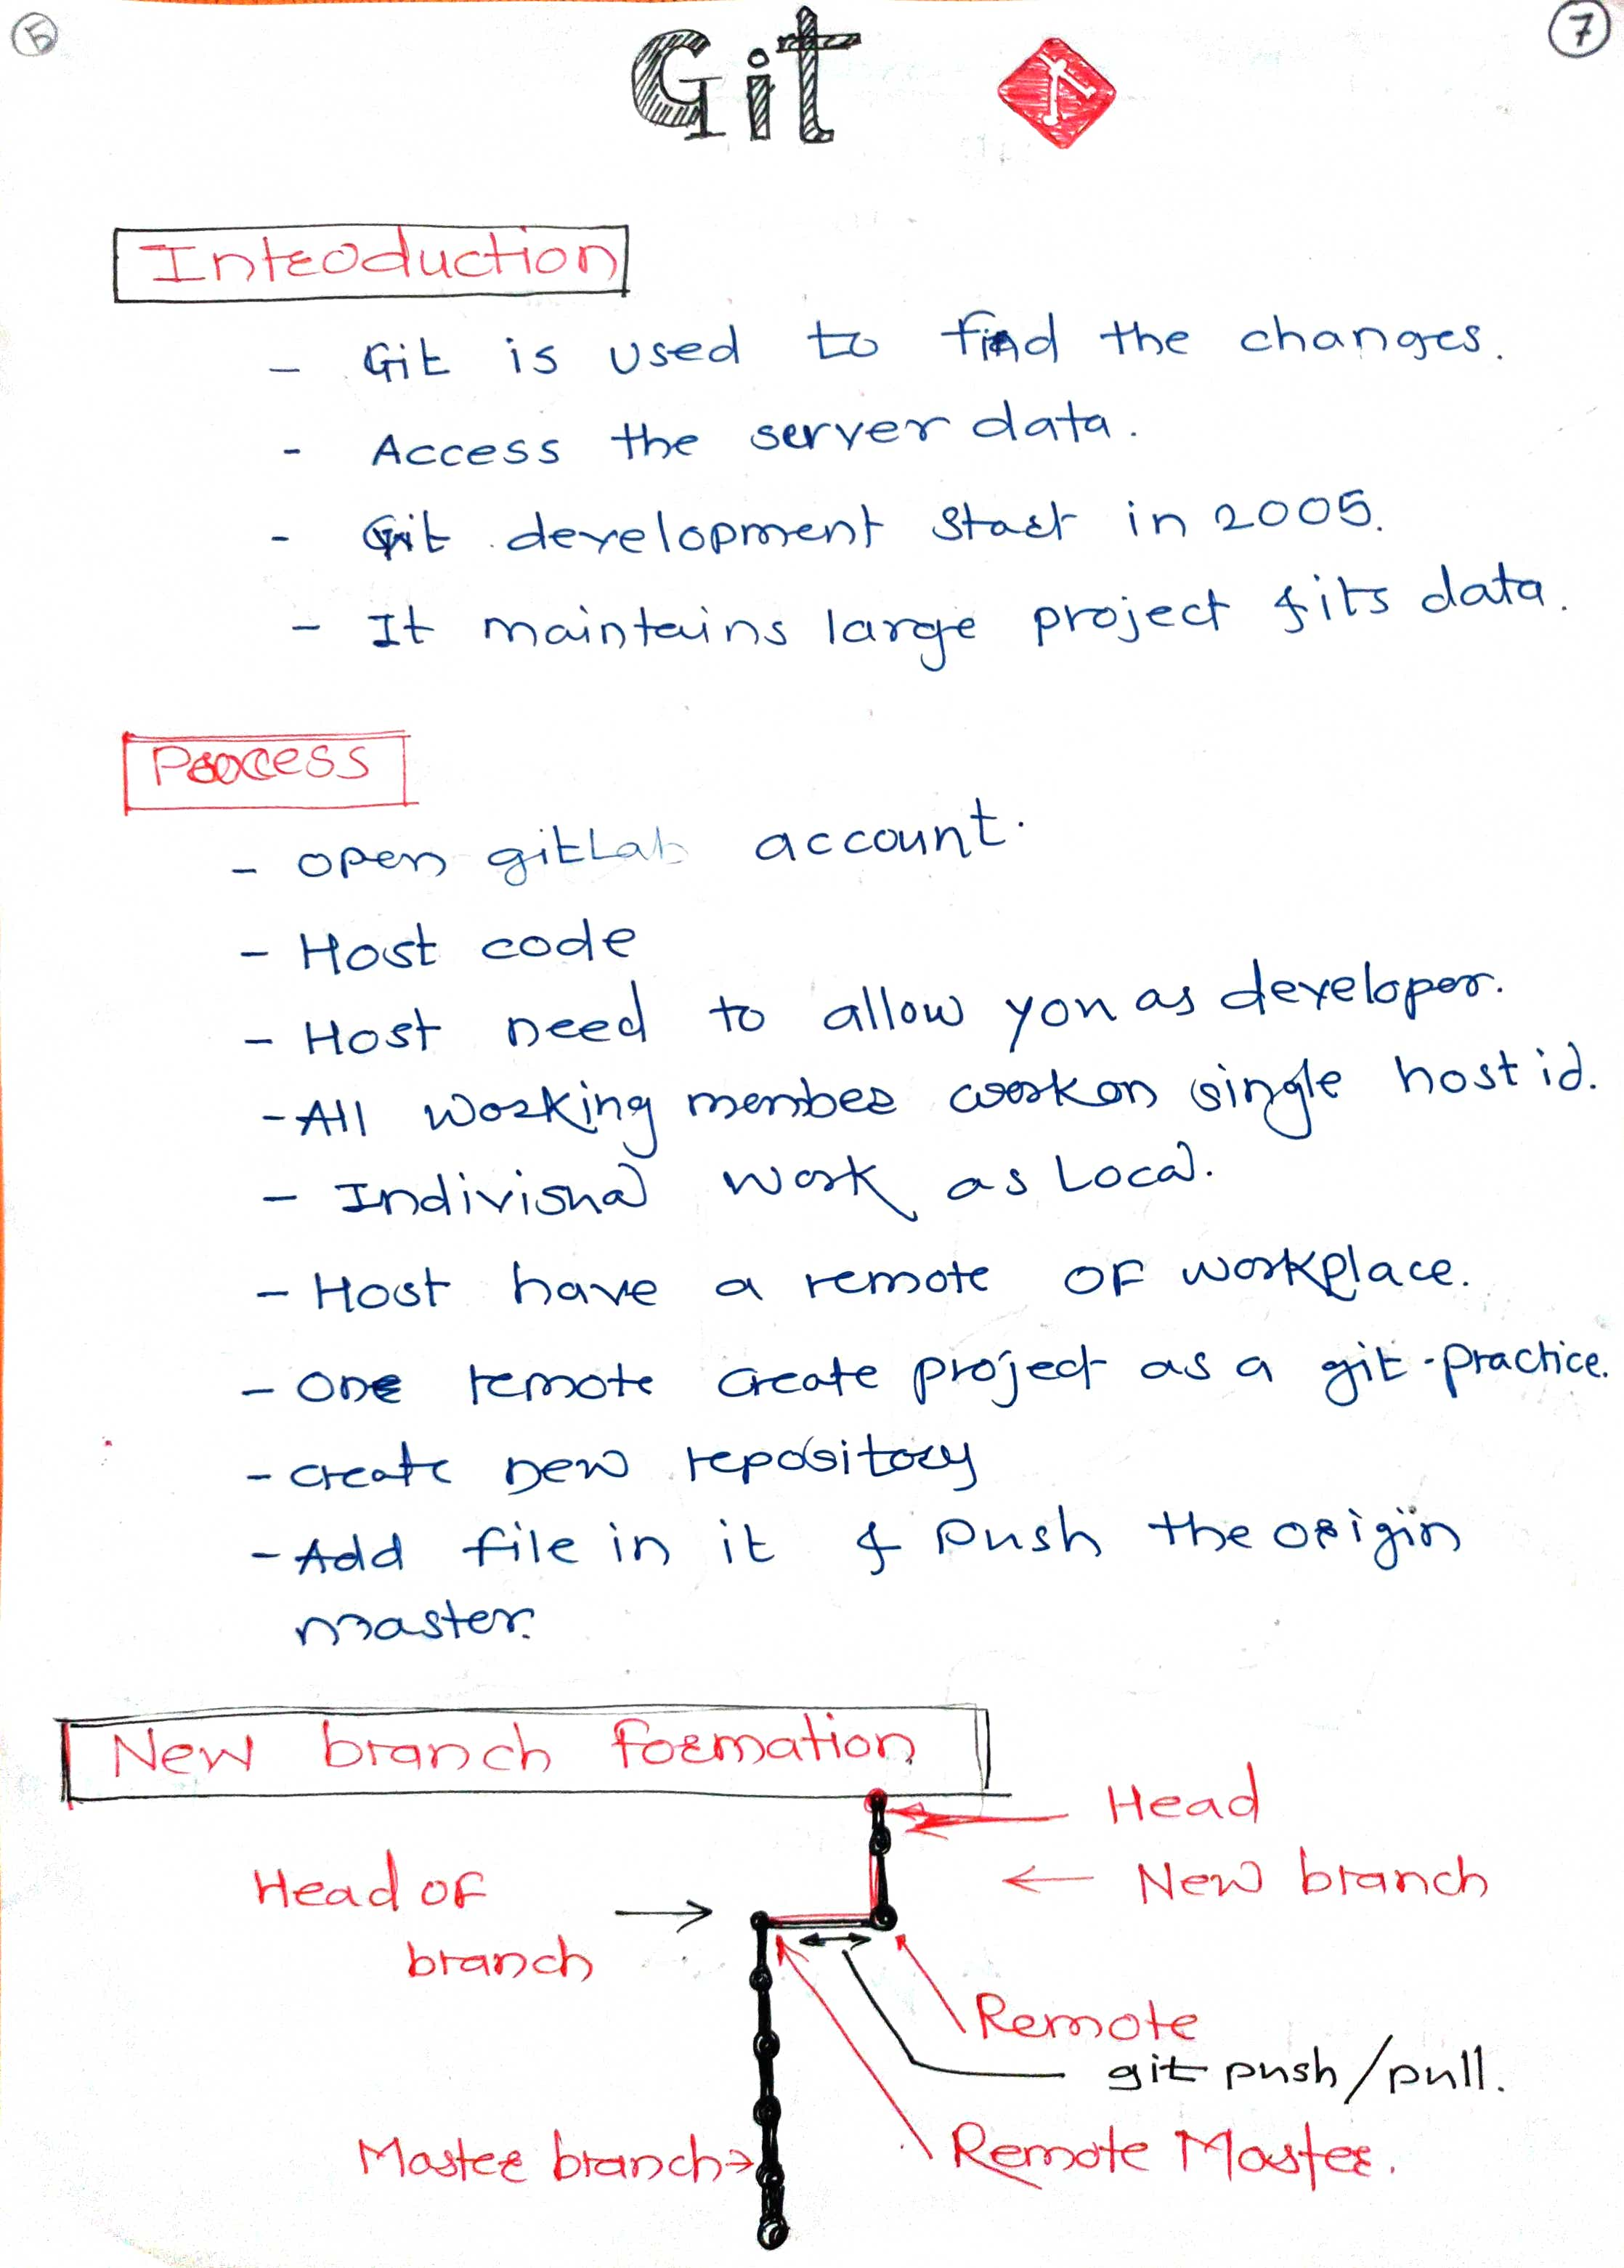 5
7
Git
Introduction
- Git is used to find the changes.
- Access the server data.
- Git development start in 2005.
- It maintains large project & its data.
Process
- open gitLab account.
- Host code
- Host need to allow you as developer.
- All working member work on single host id.
- Indivisual work as Local.
- Host have a remote OF workplace.
- One remote create project as a git-practice.
- create new repository
- Add file in it & push the origin
master.
New branch formation
Head
New branch
Head OF
branch
Remote
git push/pull.
Master branch
Remote Master.